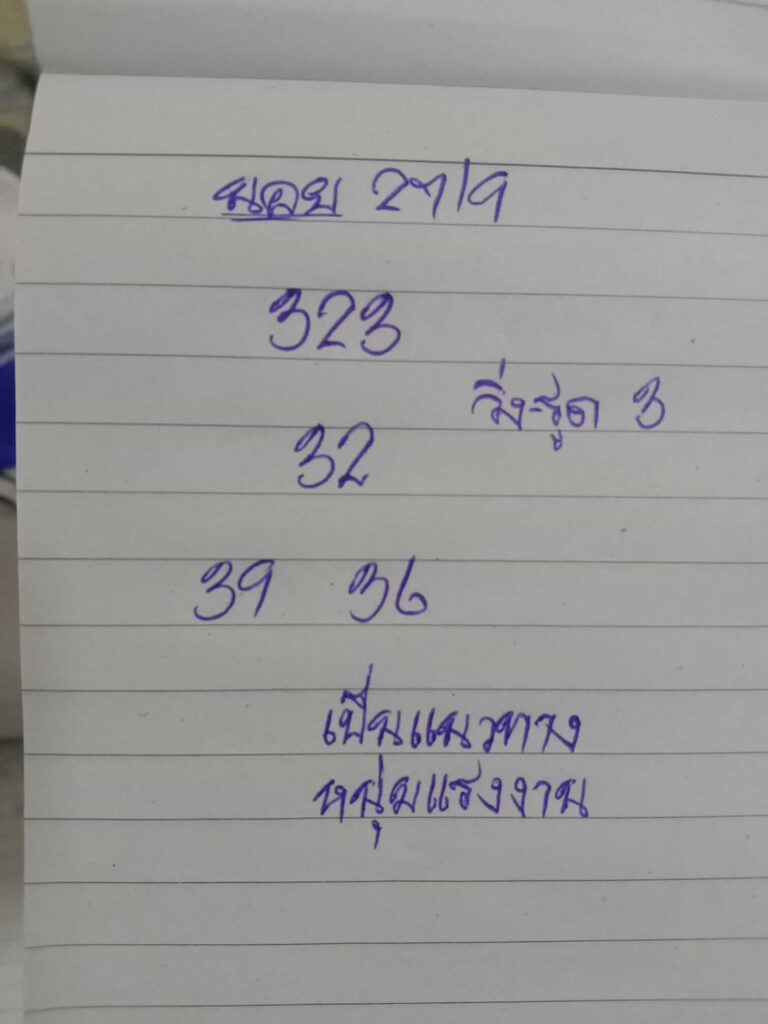 นอย 27/9
323
วิ่ง-รูด 3
32
39 36
เป็นแนวทาง
หนุ่มแรงงาน